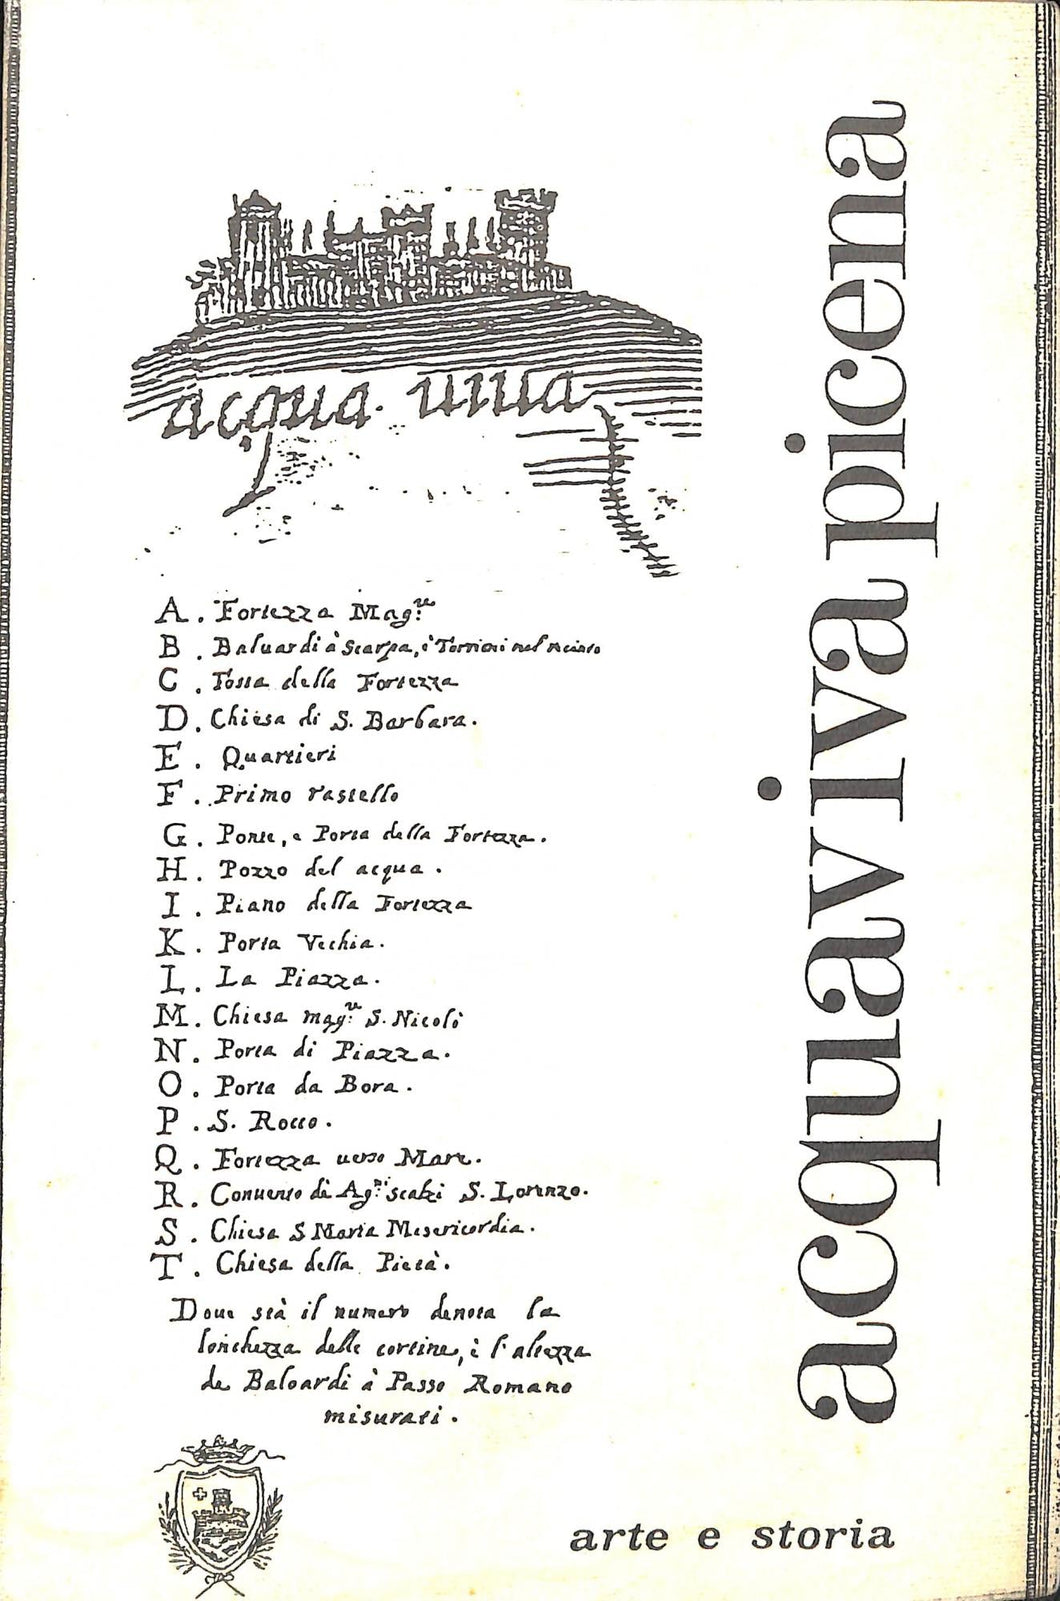 acqua uiua
A. Fortezza Mag.re
B. Baluardi à Scarpa, è Torrioni nel recinto
C. Fossa della Fortezza
D. Chiesa di S. Barbara.
E. Quartieri
F. Primo rastello
G. Ponte, e Porta della Fortezza.
H. Pozzo del acqua.
I. Piano della Fortezza
K. Porta Vechia.
L. La Piazza.
M. Chiesa mag.re S. Nicolò
N. Porta di Piazza.
O. Porta da Bora.
P. S. Rocco.
Q. Fortezza uerso Mare.
R. Conuento di Ag.ni scalzi S. Lorenzo.
S. Chiesa S Maria Misericordia.
T. Chiesa della Pietà.
Doue stà il numero denota la
lonchezza delle cortine, è l'altezza
de Baloardi à Passo Romano
misurati.
acquaviva picena
arte e storia